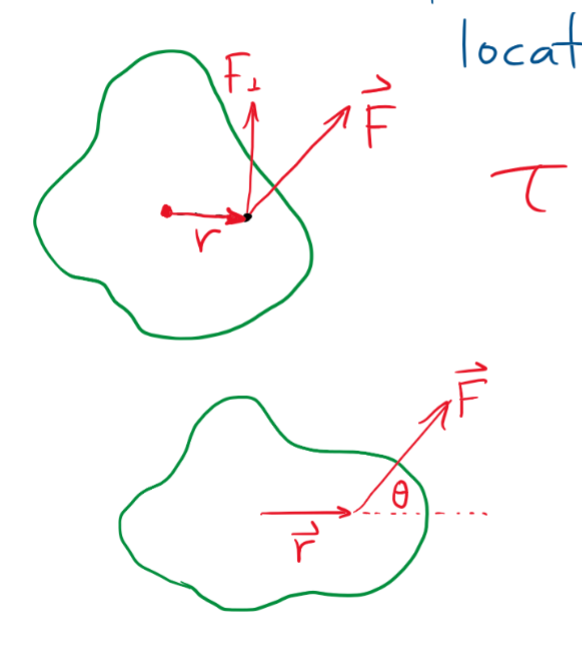 locat
F⊥
F⃗
τ
r
F⃗
θ
r⃗